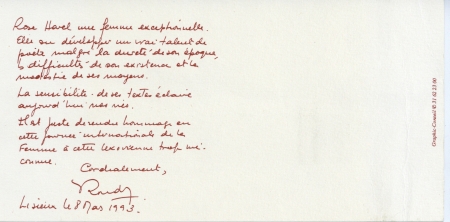 Rose Harel une femme exceptionnelle.
Elle su développer un vrai talent de
poète malgré la dureté de son époque,
difficultés de son existence et la
modestie de ses moyens.
La sensibilité de ses textes éclaire
aujourd'hui nos vies.
Il est juste de rendre hommage en
cette journée internationale de la
Femme à cette lexovienne trop mé-
connue.
Cordialement,
Lisieux le 8 Mars 1993.
Graphic Conseil